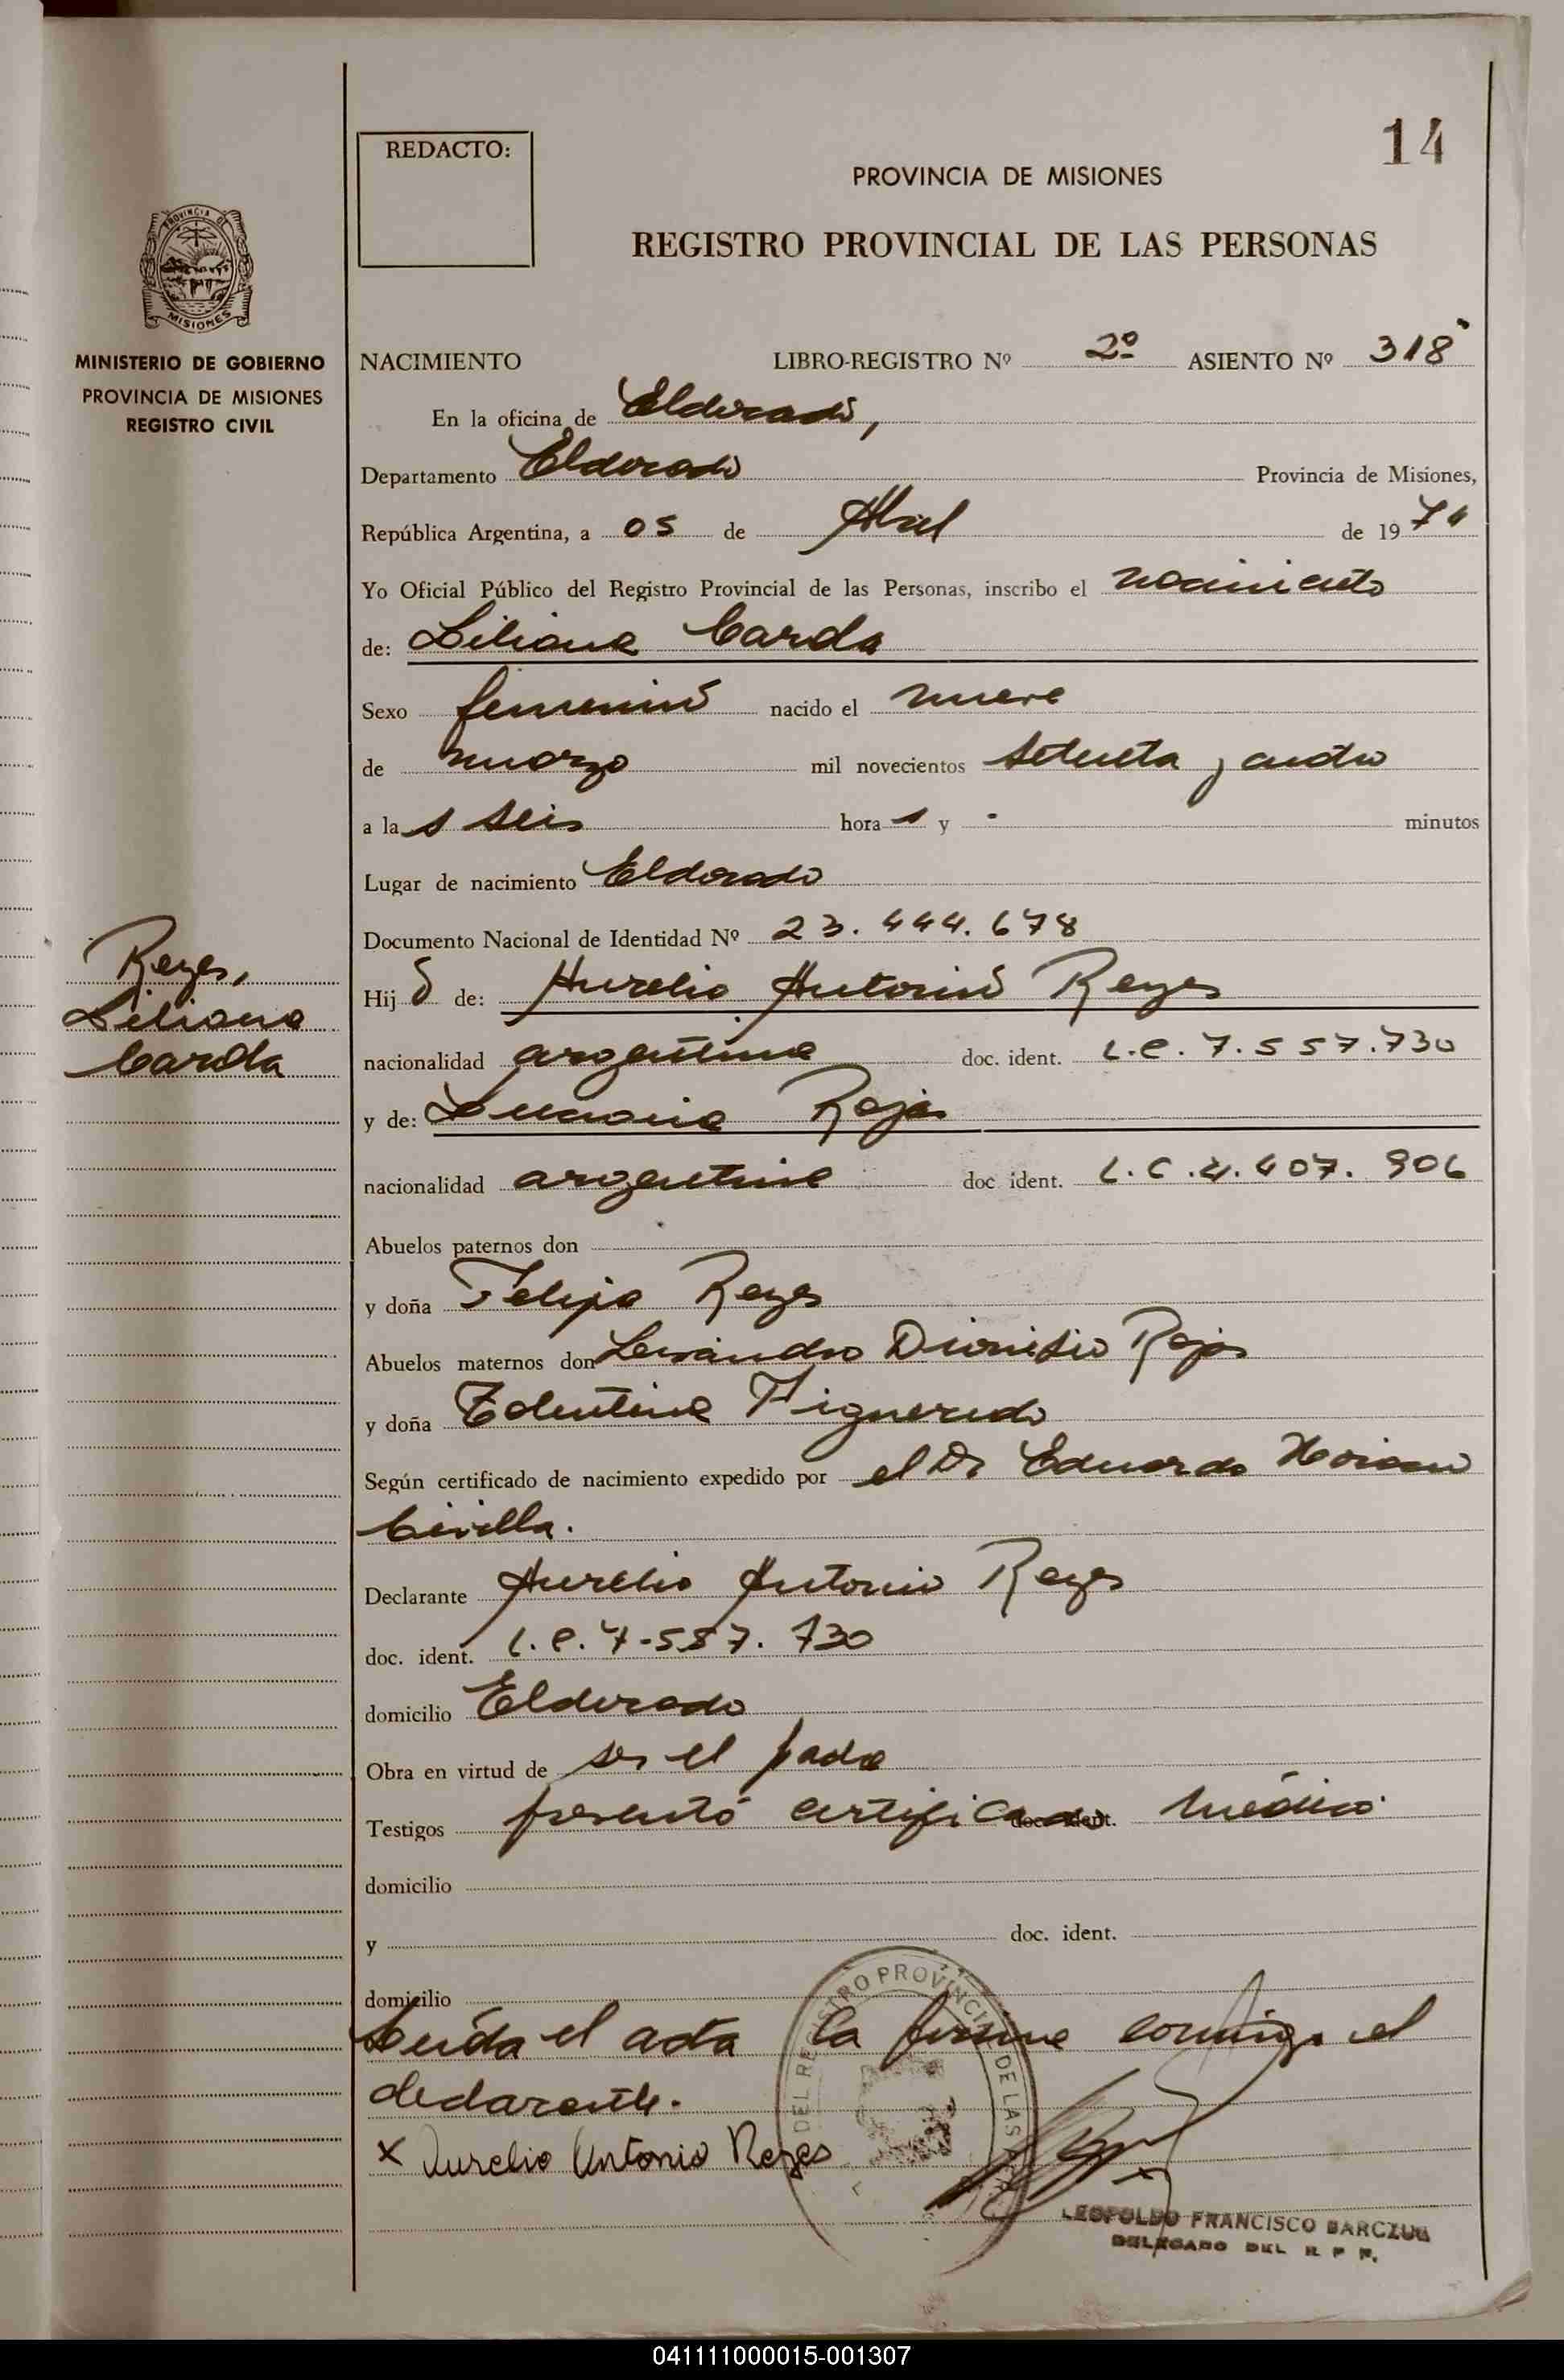 14
REDACTO:
PROVINCIA DE MISIONES
REGISTRO PROVINCIAL DE LAS PERSONAS
PROVINCIA DE
MISIONES
MINISTERIO DE GOBIERNO
PROVINCIA DE MISIONES
REGISTRO CIVIL
NACIMIENTO LIBRO-REGISTRO Nº 2º ASIENTO Nº 318
En la oficina de Eldorado,
Departamento Eldorado Provincia de Misiones,
República Argentina, a 05 de Abril de 1974
Yo Oficial Público del Registro Provincial de las Personas, inscribo el nacimiento
de: Liliana Carola
Sexo femenino nacido el nueve
de marzo mil novecientos setenta y cuatro
a la s seis hora s y - minutos
Lugar de nacimiento Eldorado
Documento Nacional de Identidad Nº 23.444.678
Reyes,
Liliana
Carola
Hij de: Aurelio Antonio Reyes
nacionalidad argentina doc. ident. L.E. 7.557.730
y de: Rojas
nacionalidad argentina doc. ident. L.C. 4.407.906
Abuelos paternos don
y doña Felipa Reyes
Abuelos maternos don Dionisio Rojas
y doña Figueredo
Según certificado de nacimiento expedido por el Dr Eduardo
Declarante Aurelio Antonio Reyes
doc. ident. L.E. 7.587.730
domicilio Eldorado
Obra en virtud de ser el padre
Testigos presentó certificado doc. ident. médico
domicilio
y doc. ident.
domicilio
Leída el acta la firma conmigo el
declarante.
x Aurelio Antonio Reyes
DEL REGISTRO PROVINCIAL DE LAS
LEOPOLDO FRANCISCO BARCZUK
DELEGADO DEL R P P.
041111000015-001307